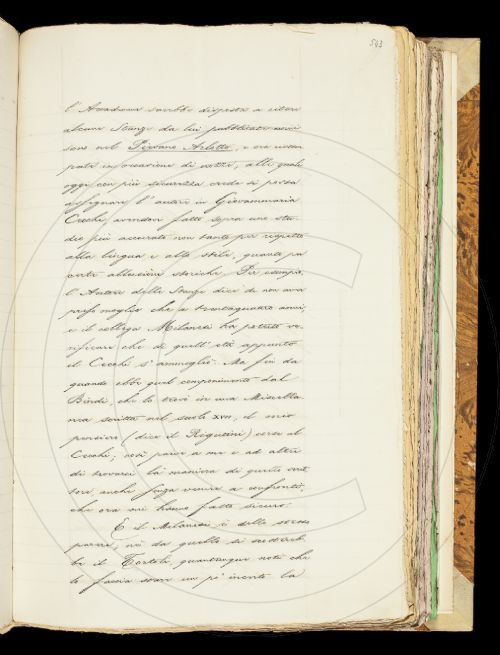 543
l'Accademia sarebbe disposta a citare
alcune Stanze da lui pubblicate anni
sono nel Piovano Arlotto, e ora ristam
pate in occasione di nozze, alle quali
oggi con più sicurezza crede si possa
assegnare l'autore in Giovammaria
Cecchi, avendovi fatto sopra uno stu-
dio più accurato non tanto per rispetto
alla lingua e allo stile, quanto per
certe allusioni storiche. Per esempio,
l'Autore delle Stanze dice di non aver
preso moglie che a trentaquattro anni,
e il collega Milanesi ha potuto ve-
rificare che di quell'età appunto
il Cecchi s'ammogliò. Ma fin da
quando ebbi quel componimento dal
Bindi, che lo trovò in una Miscella
nea scritta nel secolo XVII, il mio
pensiero (dice il Rigutini) corse al
Cecchi; così parve a me e ad altri
di trovarci la maniera di quello scrit
tore, anche senza venire a confronti,
che ora mi hanno fatto sicuro.
E il Milanesi è dello stesso
parere, nè da quello si
il Tortoli, quantunque noti che
lo faccia stare un po' incerto la